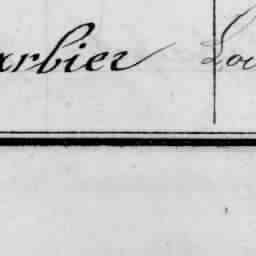 arbier Lou